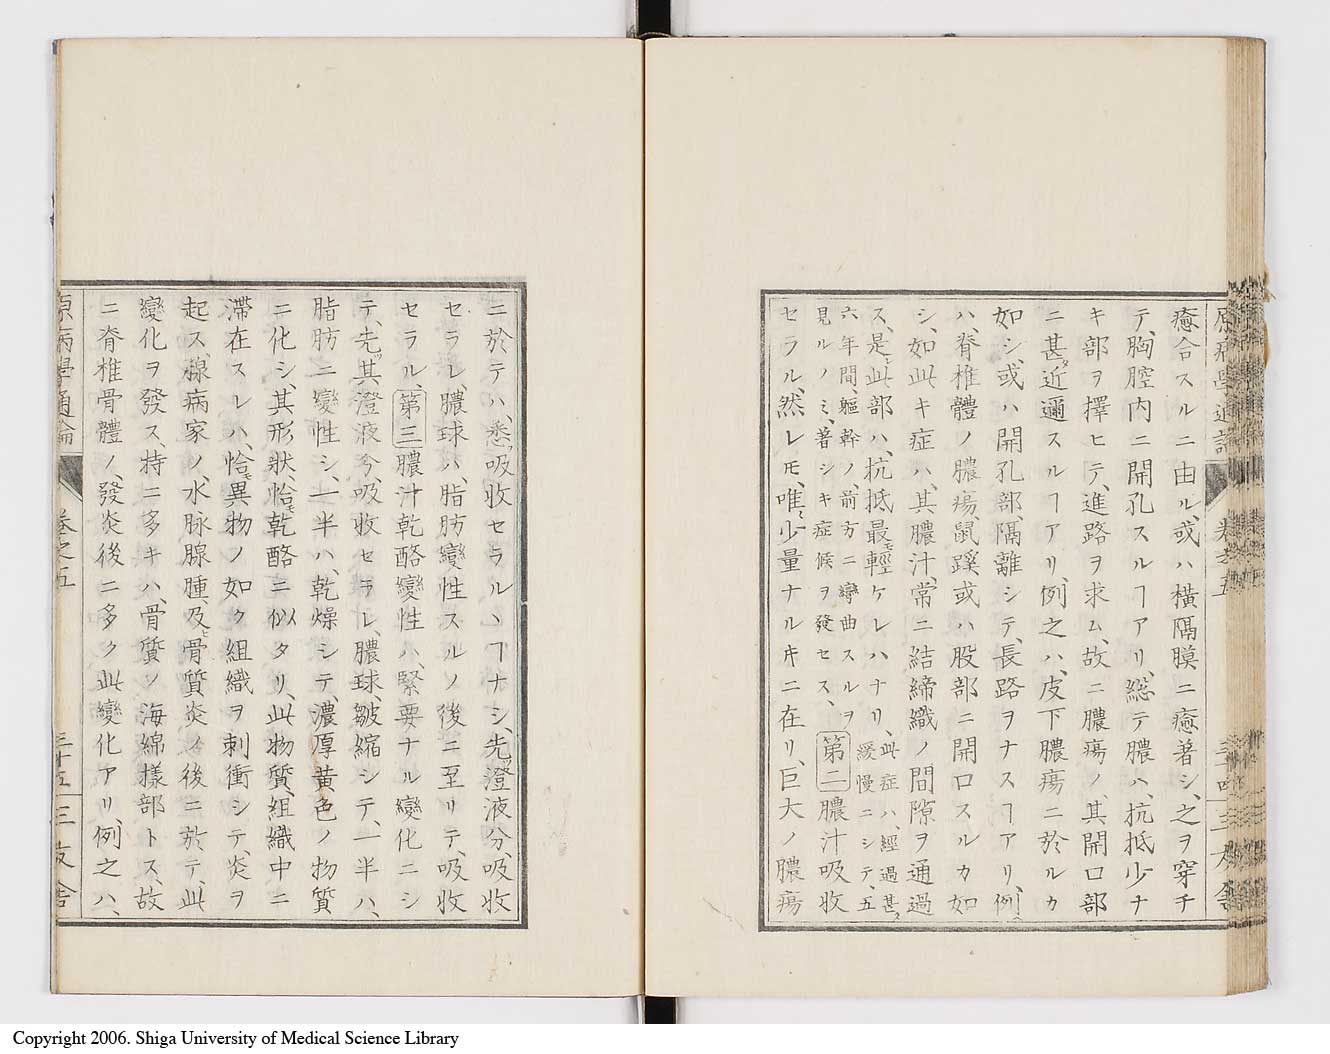 原病學通論 卷之五 三十四 三友舍
癒合スルニ由ル、或ハ横隔膜ニ癒著シ、之ヲ穿チ
テ、胸腔内ニ開孔スルヿアリ、総テ膿ハ、抗抵少ナ
キ部ヲ擇ヒテ、進路ヲ求ム、故ニ膿瘍ノ其開口部
ニ甚タ近邇スルヿアリ、例之ハ、皮下膿瘍ニ於ルカ
如シ、或ハ開孔部、隔離シテ、長路ヲナスヿアリ、例ヘ
ハ、脊椎體ノ膿瘍、鼠蹊或ハ股部ニ開口スルカ如
シ、如此キ症ハ、其膿汁、常ニ結締織ノ間隙ヲ通過
ス、是レ此部ハ、抗抵最モ輕ケレハナリ、此症ハ、經過甚タ
緩慢ニシテ、五
六年間、軀幹ノ、前方ニ彎曲スルヲ
見ルノミ、著シキ症候ヲ發セス、第二膿汁吸收
セラル、然レ𪜈、唯タ少量ナルキニ在リ、巨大ノ膿瘍
ニ於テハ、悉ク吸收セラルヽヿナシ、先ツ澄液分、吸收
セラレ、膿球ハ、脂肪變性スルノ後ニ至リテ、吸收
セラル、第三膿汁乾酪變性ハ、緊要ナル變化ニシ
テ、先ツ其澄液分、吸收セラレ、膿球皺縮シテ、一半ハ、
脂肪ニ變性シ、一半ハ、乾燥シテ、濃厚黄色ノ物質
ニ化シ、其形狀、恰モ乾酪ニ似タリ、此物質、組織中ニ
滯在スレハ、恰モ異物ノ如ク組織ヲ刺衝シテ、炎ヲ
起ス、腺病家ノ、水脉腺腫、及ヒ骨質炎ノ後ニ於テ、此
變化ヲ發ス、特ニ多キハ、骨質ノ海綿樣部トス、故
ニ脊椎骨體ノ、發炎後ニ多ク此變化アリ、例之ハ、
原病學通論 卷之五 三十五 三友舍
Copyright 2006. Shiga University of Medical Science Library